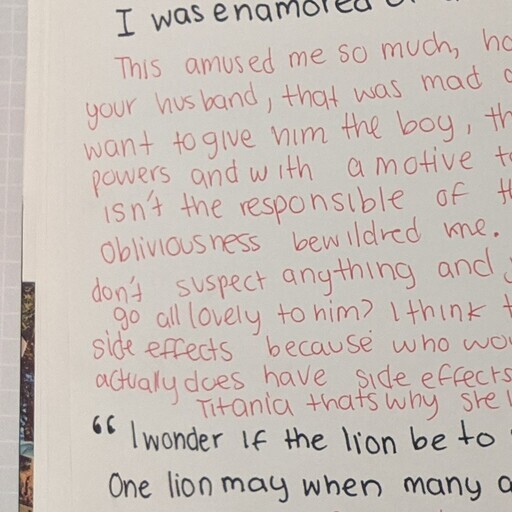 I was enamored
This amused me so much,
your husband, that was mad
want to give him the boy,
powers and with a motive
isn't the responsible of
obliviousness bewildred me.
don't suspect anything and
go all lovely to him? I think
side effects because who
actually does have side effects
Titania thats why she
“ I wonder if the lion be to
One lion may when many